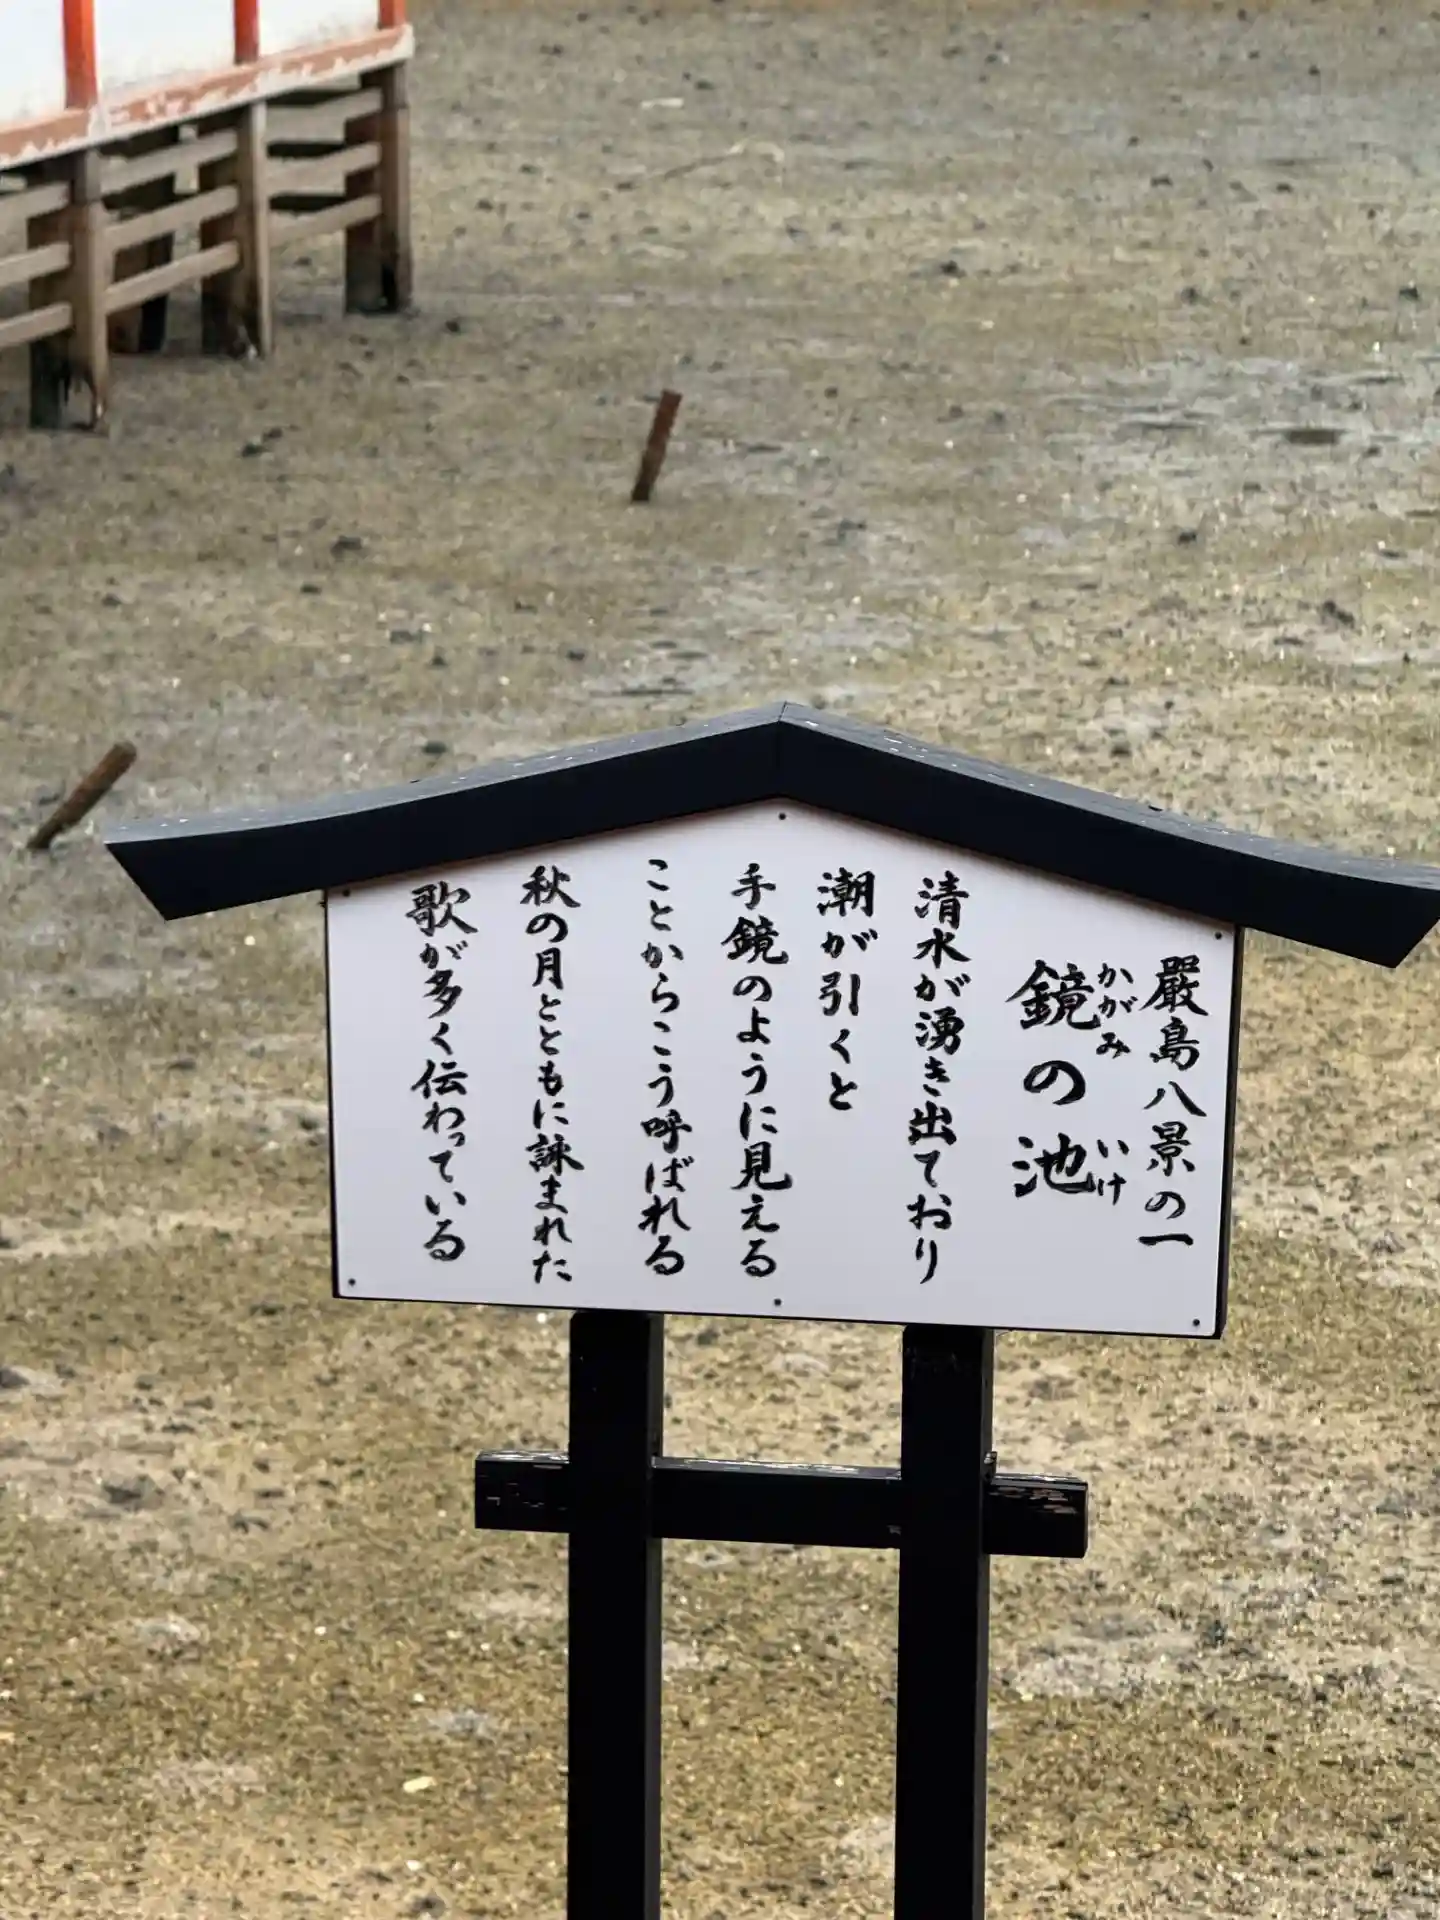 嚴島八景の一
鏡の池
かがみ
いけ
清水が湧き出ており
潮が引くと
手鏡のように見える
ことからこう呼ばれる
秋の月とともに詠まれた
歌が多く伝わっている